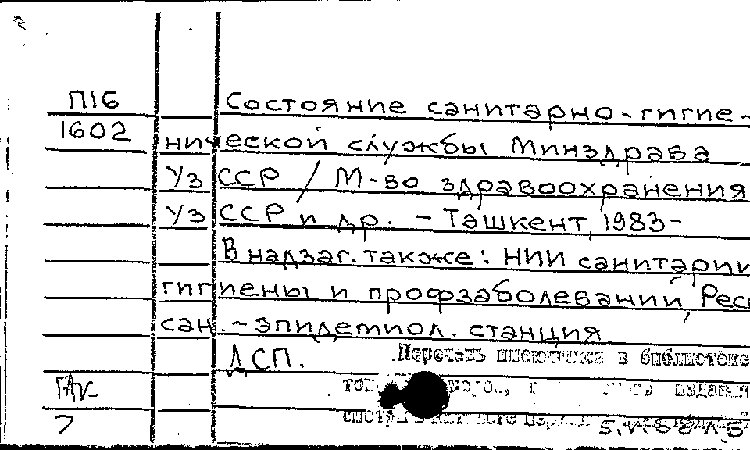 П16 Состояние санитарно-гигие-
1602 нической службы Минздрава
Уз ССР / М-во здравоохранения
Уз ССР и др. - Ташкент, 1983-
В надзаг. также: НИИ санитарии
гигиены и профзаболеваний, Рес
сан. - эпидемиол. станция
ДСП. Перечень имеющихся в библиотеке
7